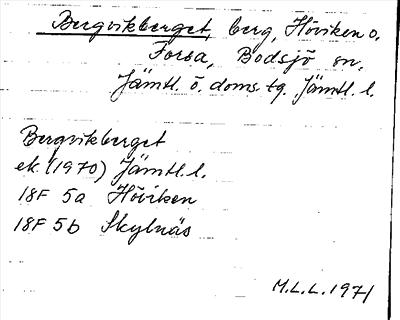 Bergvikberget, berg, Höviken o.
Forsa, Bodsjö sn,
Jämtl. ö. doms. tg. Jämtl. l.
Bergvikberget
ek. (1970) Jämtl. l.
18F 5a Höviken
18F 5b Skylnäs
M.L.L. 1971